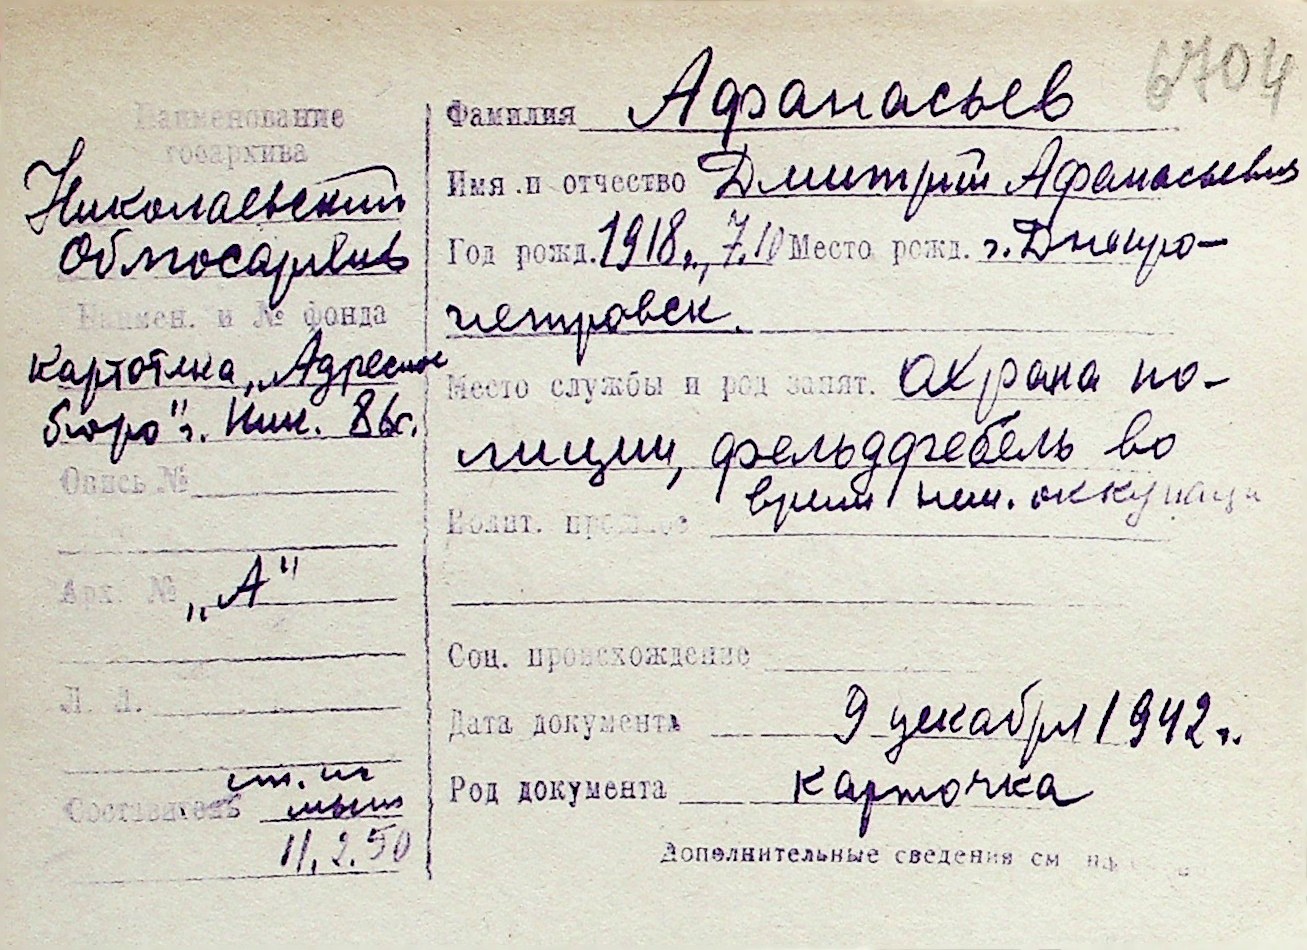 6704
Наименование
госархива
Николаевский
Облгосархив
Наимен. и № фонда
Картотека „Адресное
бюро" г. Ник. 86г.
Опись №
Арх. № „А"
Л. Л.
Составитель
11.2.50
Фамилия Афанасьев
Имя и отчество Дмитрий Афанасьевич
Год рожд. 1918г., 7.10 Место рожд. г. Днепро-
петровск.
Место службы и род занят. охрана по-
лиции, фельдфебель во
время нем. оккупаци
Полит. прошлое
Соц. происхождение
Дата документа 9 декабря 1942 г.
Род документа карточка
Дополнительные сведения см на